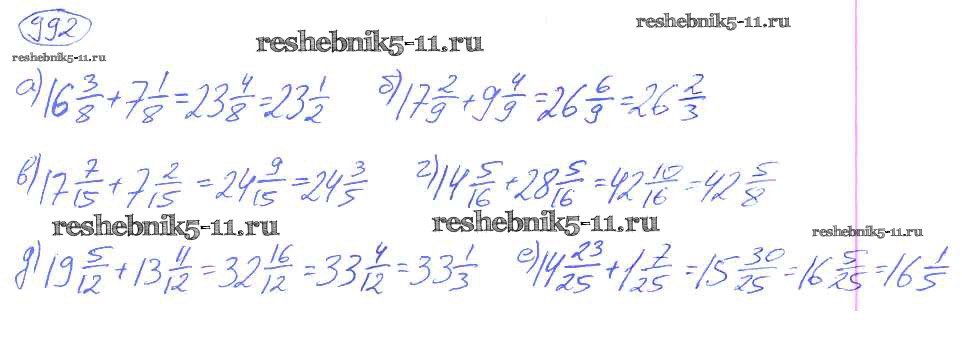 992
reshebnik5-11.ru
reshebnik5-11.ru
reshebnik5-11.ru
а) 16 3/8 + 7 1/8 = 23 4/8 = 23 1/2 б) 17 2/9 + 9 4/9 = 26 6/9 = 26 2/3
в) 17 7/15 + 7 2/15 = 24 9/15 = 24 3/5 г) 14 5/16 + 28 5/16 = 42 10/16 = 42 5/8
reshebnik5-11.ru reshebnik5-11.ru
reshebnik5-11.ru
д) 19 5/12 + 13 11/12 = 32 16/12 = 33 4/12 = 33 1/3 е) 14 23/25 + 1 7/25 = 15 30/25 = 16 5/25 = 16 1/5